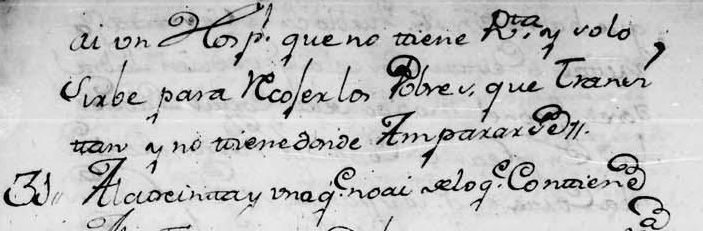 ai un Hosp.l que no ttiene R.ta y solo
Sirbe para Recojer los Pobres, que Transi
ttan y no ttiene donde Ampararse //.
31,, A la treintta y una q.e no ai de lo q.e Conttiene